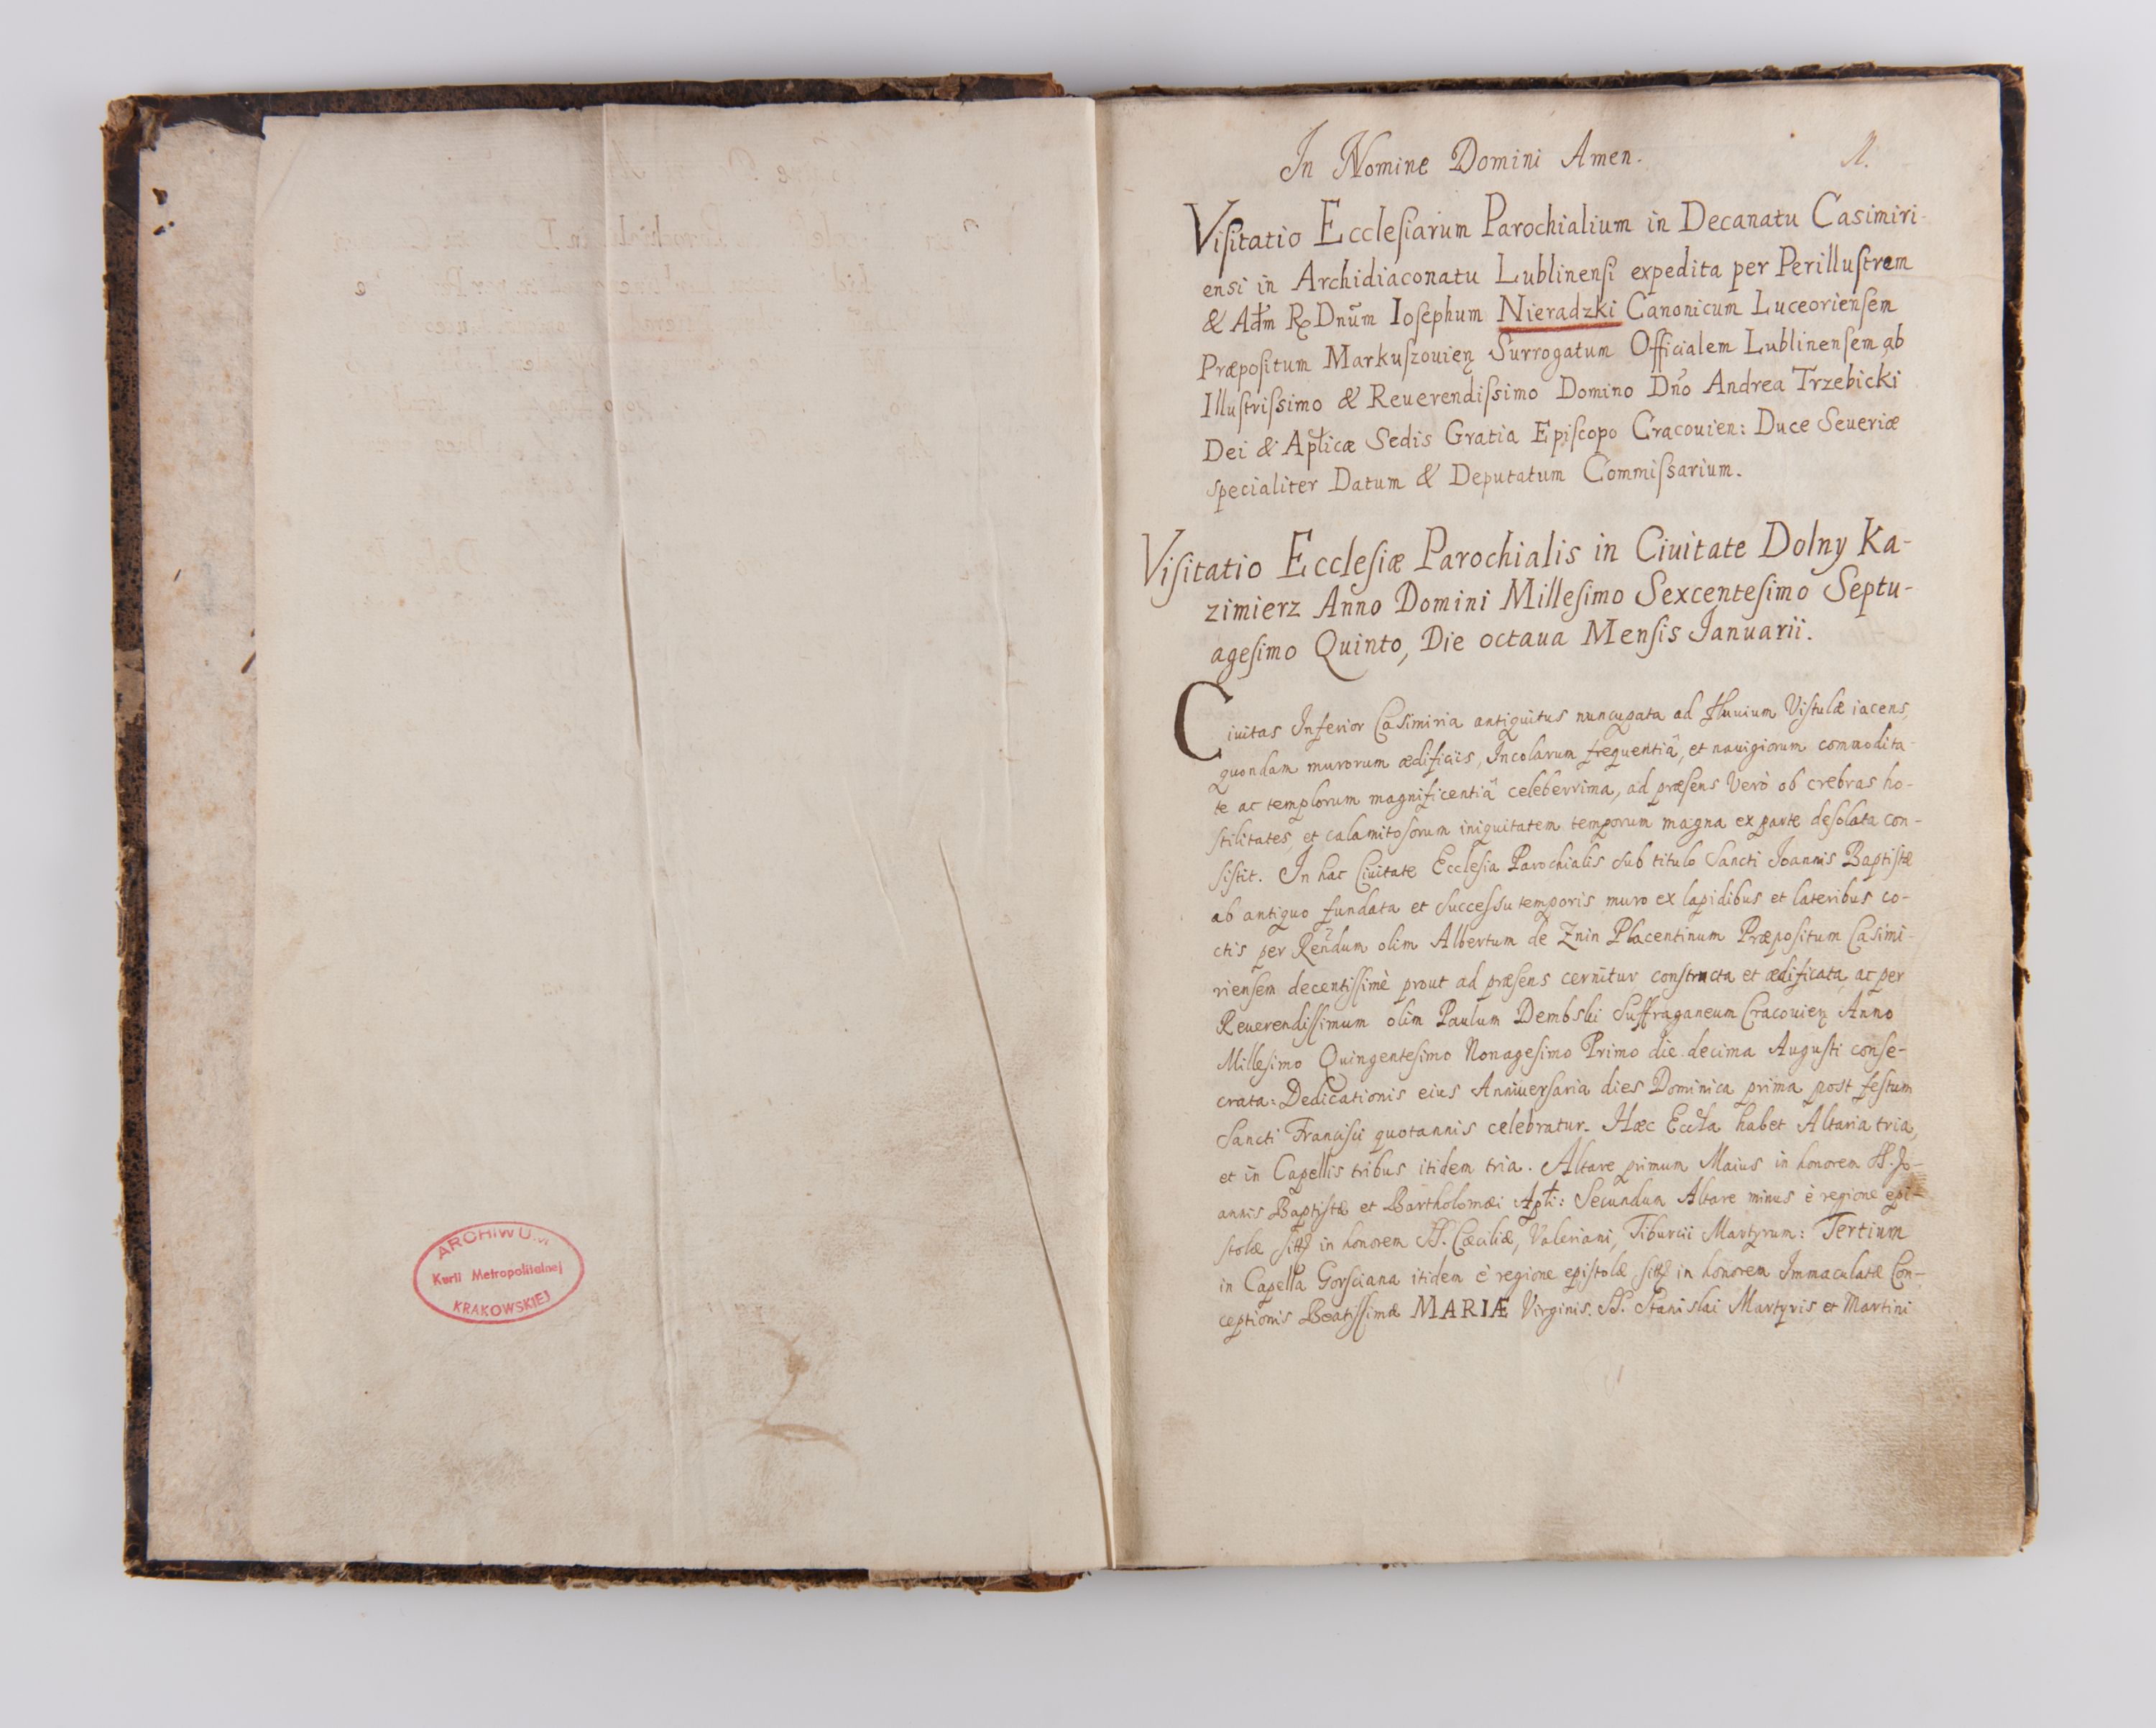 ARCHIWUM
Kurii Metropolitalnej
KRAKOWSKIEJ
In Nomine Domini Amen.
Viſitatio Eccleſiarum Parochialium in Decanatu Casimiri-
ensi in Archidiaconatu Lublinenſi expedita per Perilluſtrem
& Adm R. Dnum Ioſephum Nieradzki Canonicum Luceorienſem
Præpoſitum Markuſzouien Surrogatum Officialem Lublinenſem ab
Illuſtriſsimo & Reuerendiſsimo Domino Dno Andrea Trzebicki
Dei & Aplicæ Sedis Gratia Epiſcopo Cracouien: Duce Seueriæ
specialiter Datum & Deputatum Commiſsarium.
Viſitatio Eccleſiæ Parochialis in Ciuitate Dolny Ka-
zimierz Anno Domini Milleſimo Sexcenteſimo Septu-
ageſimo Quinto, Die octaua Menſis Ianuarii.
Ciuitas Inferior Casimiria antiquitus nuncupata ad fluuium Viſtulæ iacens,
quondam murorum ædificiis, Incolarum frequentiâ, et nauigiorum commodita-
te ac templorum magnificentiâ celeberrima, ad præſens Verò ob crebras ho-
ſtilitates, et calamitoſorum iniquitatem temporum magna ex parte deſolata con-
ſiſtit. In hac Ciuitate Eccleſia Parochialis sub titulo Sancti Ioannis Baptiſtæ
ab antiquo fundata et Succeſsu temporis muro ex lapidibus et lateribus co-
ctis per Rendum olim Albertum de Znin Placentinum Præpoſitum Casimi-
rienſem decentiſſimè prout ad præſens cernitur constructa et ædificata, ac per
Reuerendiſſimum olim Paulum Dembski Suffraganeum Cracouien Anno
Milleſimo Quingenteſimo Nonageſimo Primo die decima Auguſti conſe-
crata: Dedicationis eius Anniuerſaria dies Dominica prima post feſtum
Sancti Franciſci quotannis celebratur. Hæc Eccla habet Altaria tria,
et in Capellis tribus itidem tria. Altare primum Maius in honorem SS. Jo-
annis Baptiſtæ et Bartholomæi Apli: Secundum Altare minus è regione epi-
stolæ in honorem SS. Cæciliæ, Valeriani, Tiburcii Martyrum: Tertium
in Capella Gorſciana itidem è regione epiſtolæ in honorem Immaculatæ Con-
ceptionis Beatiſſimæ MARIÆ Virginis. SS. Stanislai Martyris et Martini